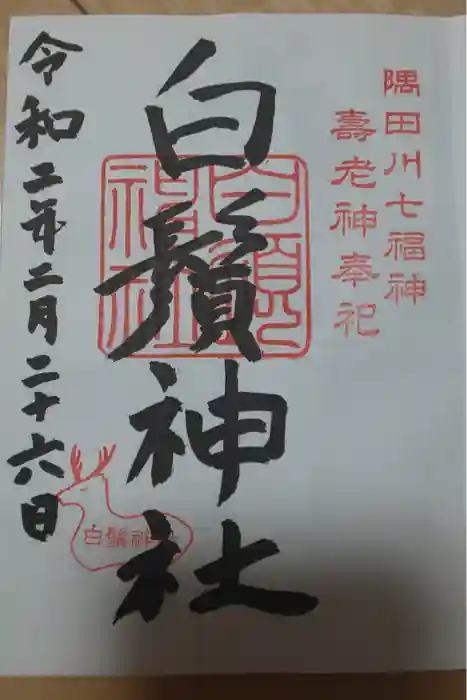 隅田川七福神
壽老神奉祀
白鬚神社
白鬚神社
令和二年二月二十六日
白鬚神社